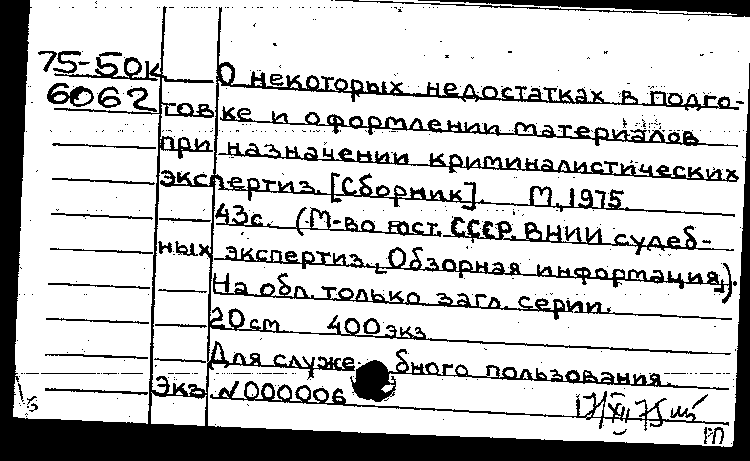 75-50к О некоторых недостатках в подго-
6062 товке и оформлении материалов
при назначении криминалистических
экспертиз. [Сборник]. М., 1975.
43с. (М-во юст. СССР. ВНИИ судеб-
ных экспертиз. [Обзорная информация]).
На обл. только загл. серии.
20см 400экз
Для служебного пользования.
Экз №000006
17/XII 75